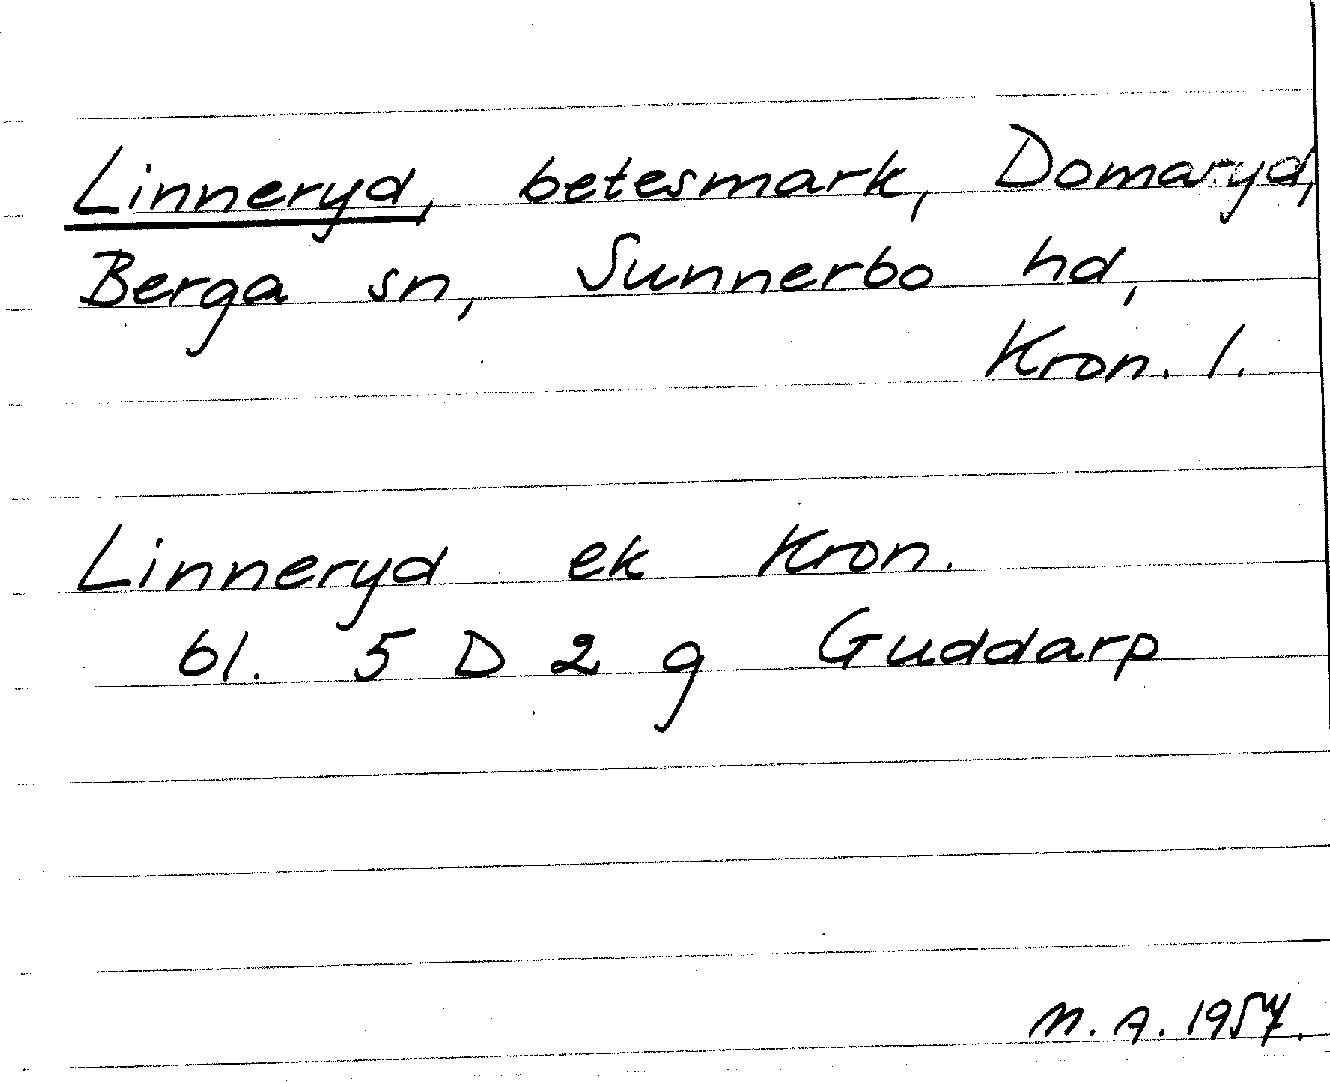 Linneryd, betesmark, Domaryd,
Berga sn, Sunnerbo hd,
Kron. l.
Linneryd ek Kron.
bl. 5 D 2 g Guddarp
M.A. 1957.